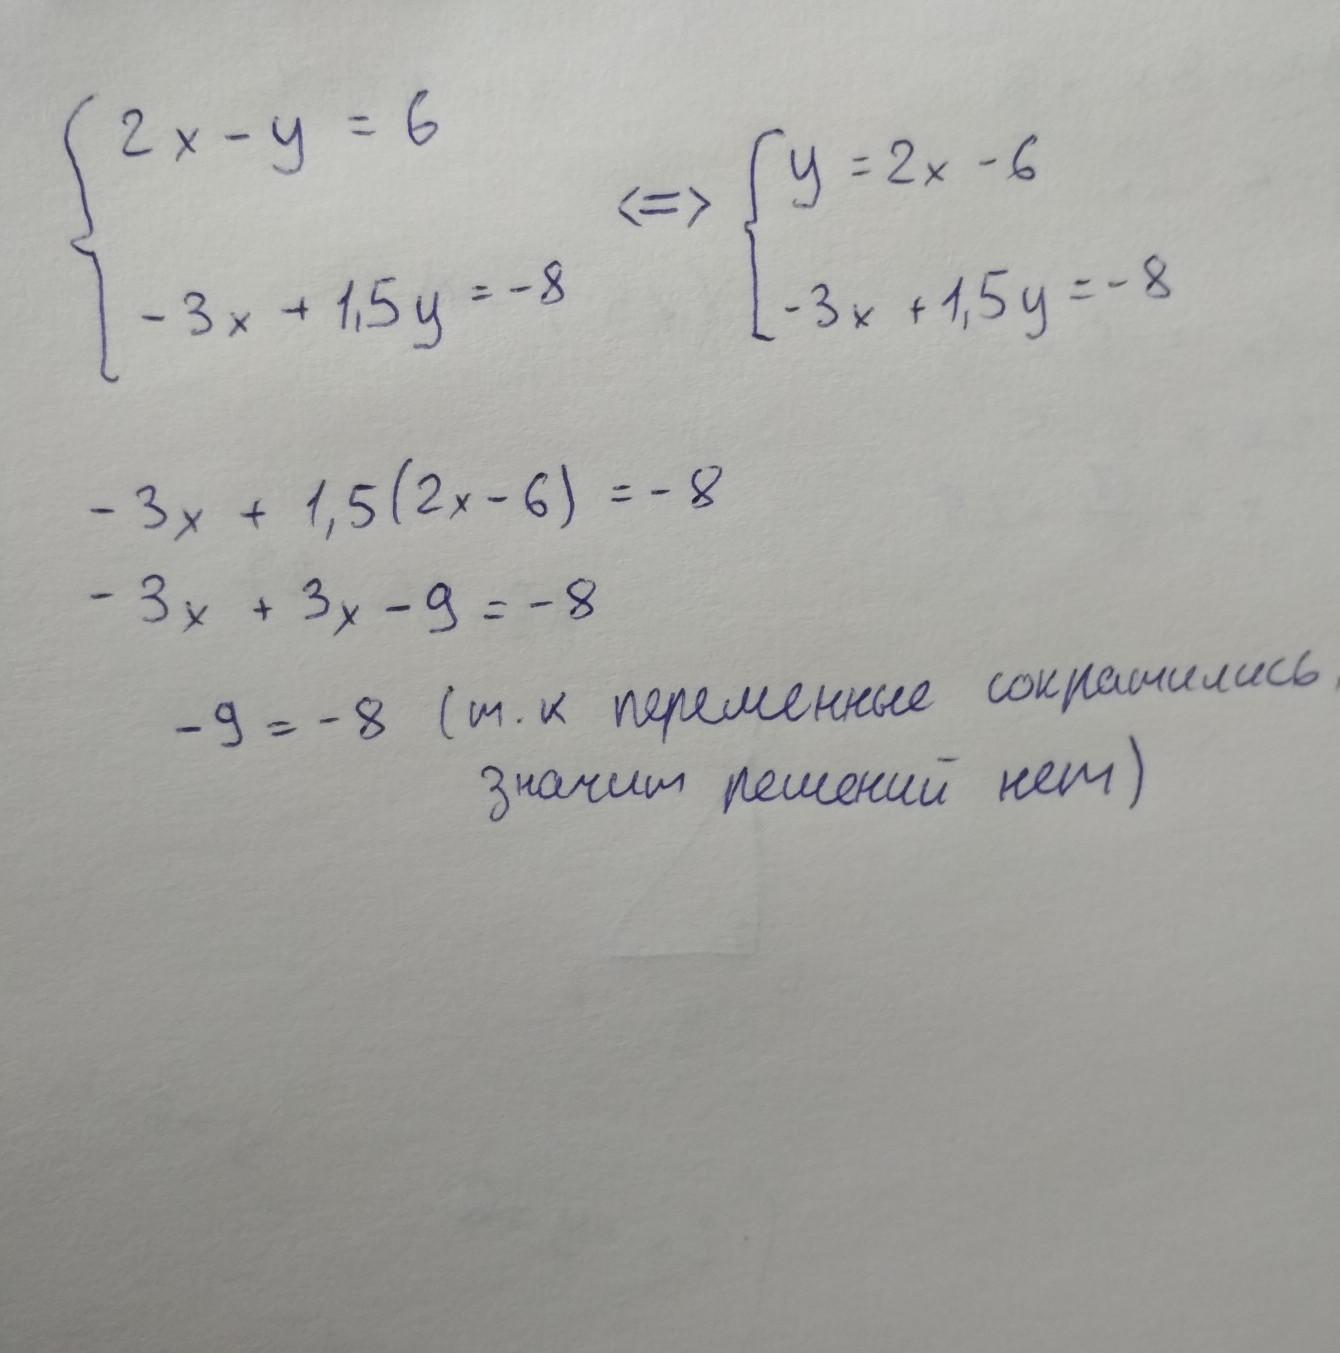 2x - y = 6
-3x + 1,5y = -8
<=>
y = 2x - 6
-3x + 1,5y = -8
-3x + 1,5(2x - 6) = -8
-3x + 3x - 9 = -8
-9 = -8 (т.к переменные сократились,
значит решений нет)